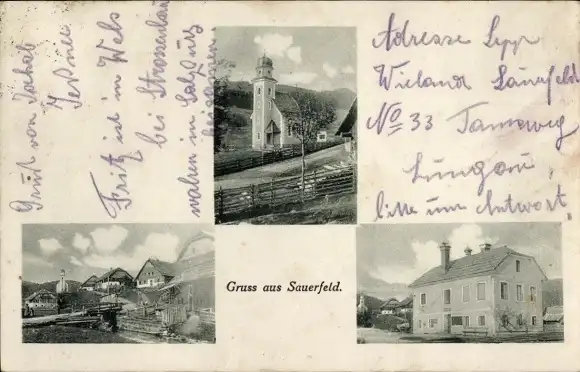 Gruß von Jakob
Fritz ist in Wels
bei Strassenbau
waren in Salzburg
Adresse Sepp
Wieland Sauerfeld
No 33 Tamsweg
Lungau,
bitte um Antwort
Gruss aus Sauerfeld.